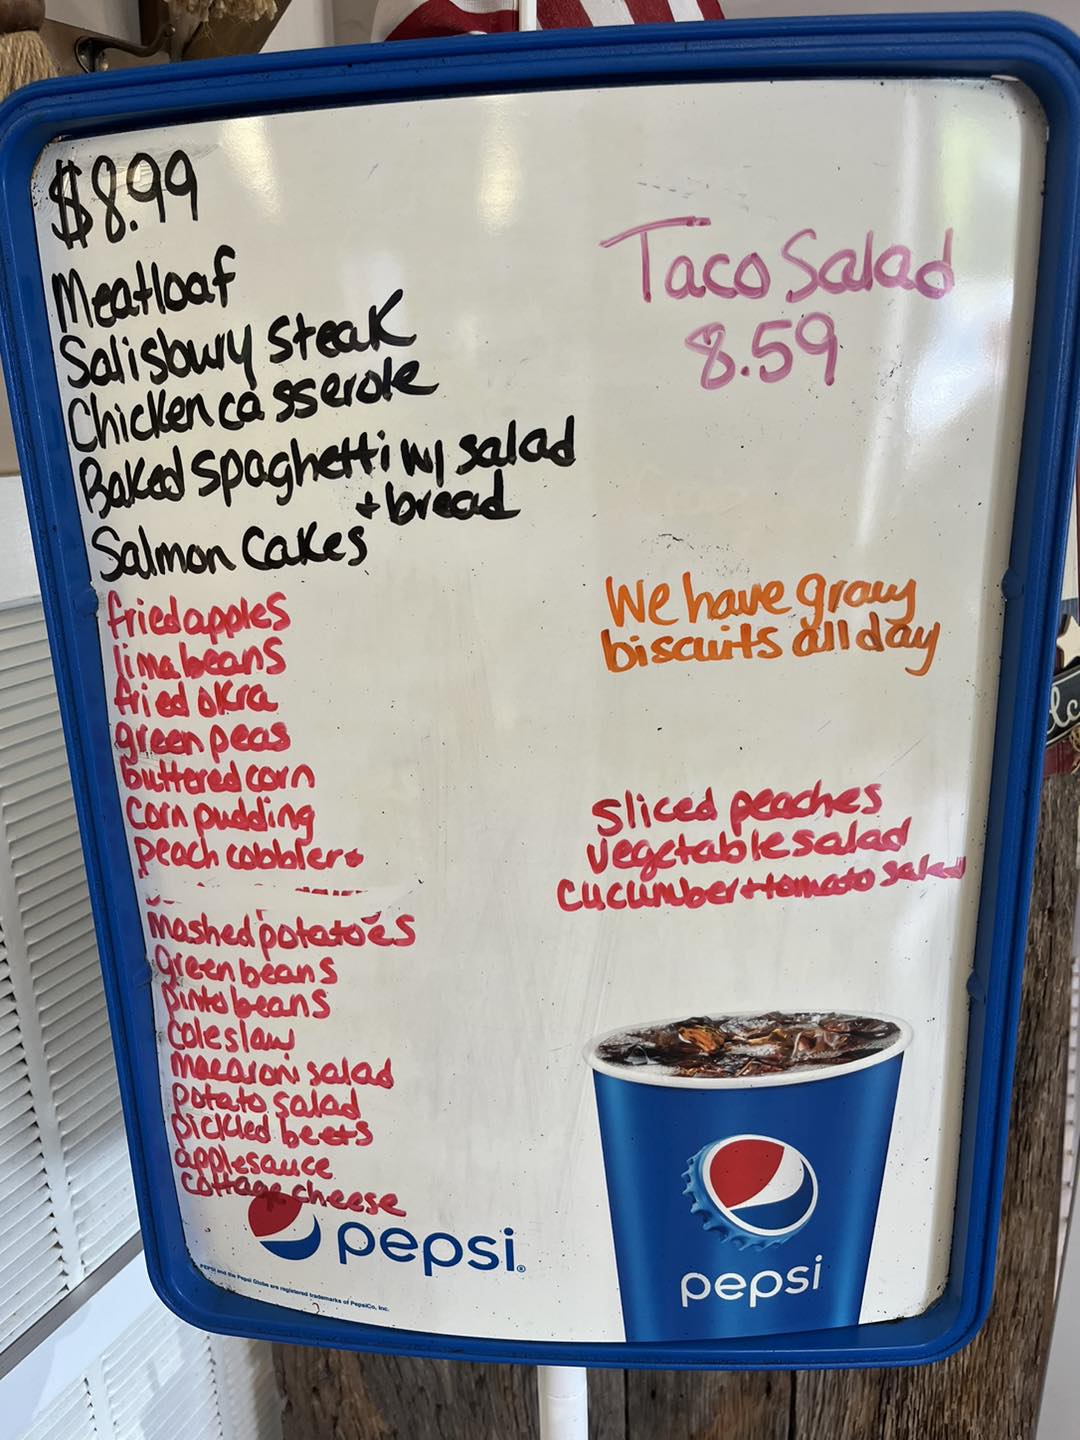 $8.99
Meatloaf
Salisbury Steak
Chicken casserole
Baked spaghetti w/ salad
+ bread
Salmon Cakes
fried apples
lima beans
fried okra
green peas
buttered corn
Corn pudding
peach cobbler+
Mashed potatoes
Green beans
pinto beans
Coleslaw
macaroni salad
potato salad
pickled beets
applesauce
cottage cheese
Taco Salad
8.59
We have gravy
biscuits all day
Sliced peaches
vegetable salad
Cucumber+tomato salad
pepsi
pepsi®
PEPSI and the Pepsi Globe are registered trademarks of PepsiCo, Inc.